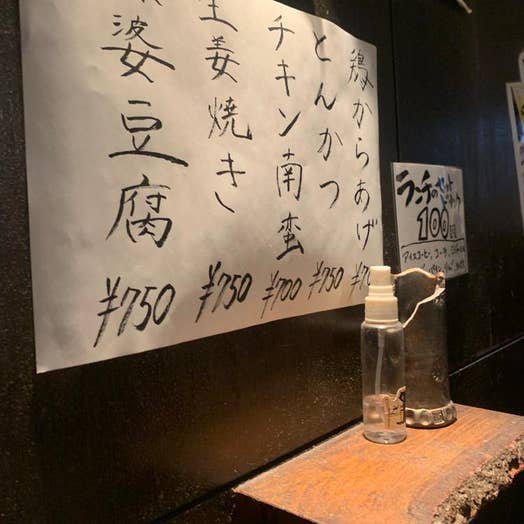 鶏からあげ ¥70
とんかつ ¥750
チキン南蛮 ¥700
生姜焼き ¥750
婆豆腐 ¥750
ランチの
セット
100円
アイスコーヒー、コーラ、